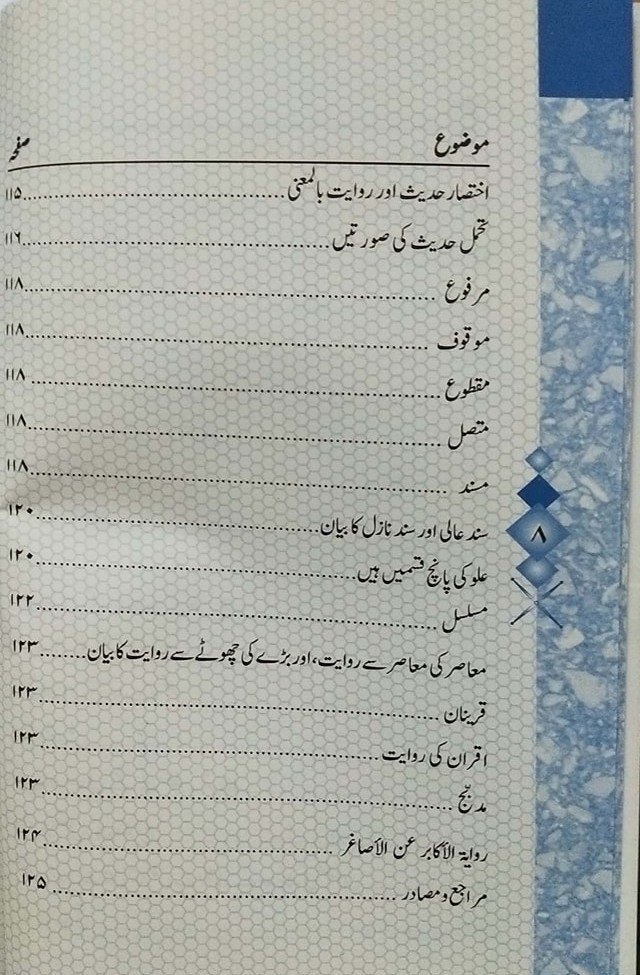 موضوع صفحہ
اختصار حدیث اور روایت بالمعنی ........ ۱۱۵
تحمل حدیث کی صورتیں ........ ۱۱۶
مرفوع ........ ۱۱۸
موقوف ........ ۱۱۸
مقطوع ........ ۱۱۸
متصل ........ ۱۱۸
مسند ........ ۱۱۸
سند عالی اور سند نازل کا بیان ........ ۱۲۰
علو کی پانچ قسمیں ہیں ........ ۱۲۰
مسلسل ........ ۱۲۲
معاصر کی معاصر سے روایت، اور بڑے کی چھوٹے سے روایت کا بیان ........ ۱۲۳
قرینان ........ ۱۲۳
اقران کی روایت ........ ۱۲۳
مدبج ........ ۱۲۳
روایة الأکابر عن الأصاغر ........ ۱۲۴
مراجع و مصادر ........ ۱۲۵
۸